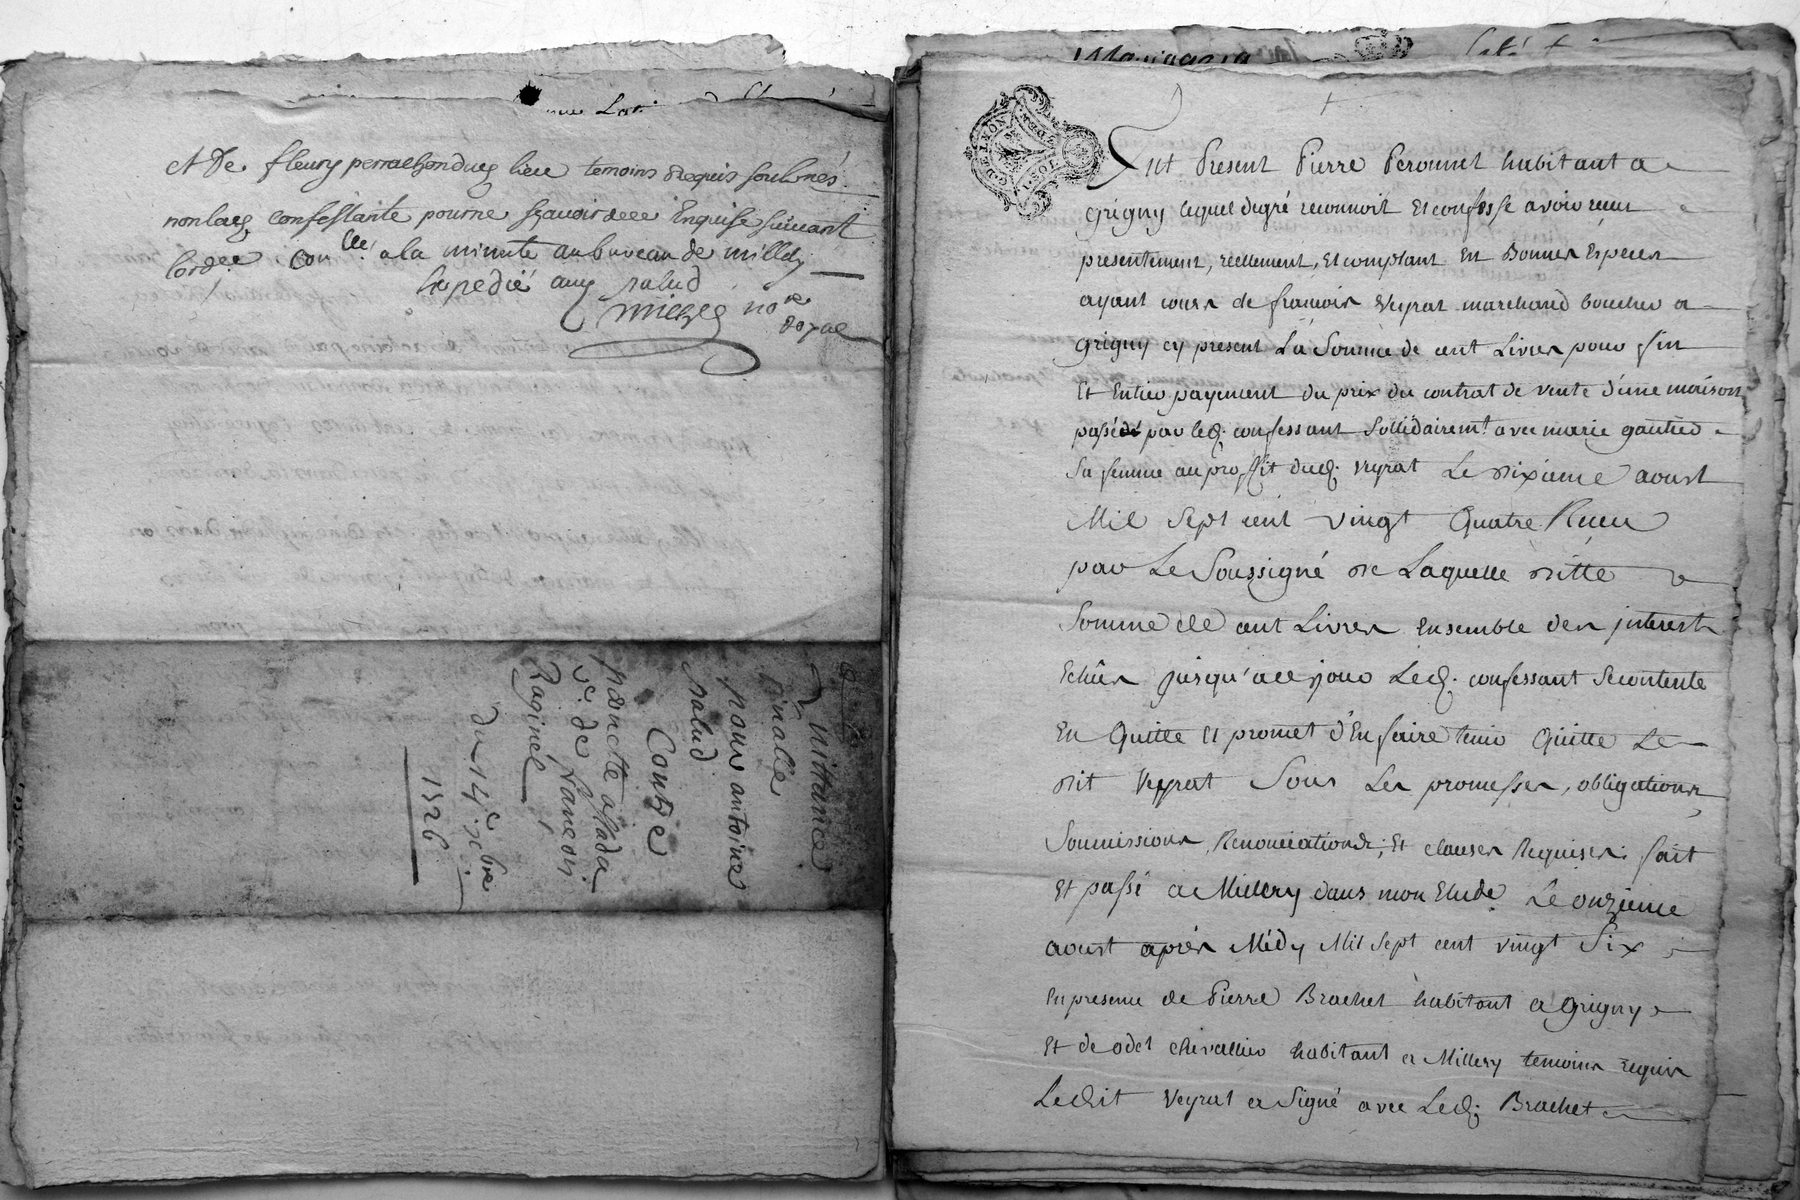 et de fleury perrachon dud lieu temoins requis soubsnés
non lad. confessante pour ne sçavoir de ce enquise suivant
lordce Conllé a la minutte au bureau de millery
Expedié aud salud
michel nore royal
Quittance
finalle
pour antoine
salud
Contre
ve. de
Raginel
du 14e xbre
1726
Fut Present Pierre Peronnet habitant a
Grigny lequel de gré reconnoit Et confesse avoir receu
presentement, reellement, Et comptant En Bonnes Especes
ayant cours de francois Veyrat marchand boucher a
Grigny cy present La Somme de cent Livres pour fin
Et Entier payement du prix du contrat de vente d'une maison
passé par led. confessant Sollidairemt. avec marie gautier
Sa femme au proffit dud. Veyrat Le dixieme aoust
Mil Sept cent vingt Quatre Receu
par Le Soussigné de Laquelle ditte
Somme de cent Livres Ensemble des jnterest
Echûs jusqu'a ce jour Led. confessant Se contente
En Quitte et promet d'En faire tenir Quitte Le
dit Veyrat Sous Les promesses, obligations,
Soumissions, Renonciations, Et clauses Requises: fait
Et passé a Millery dans mon Etude Le onzieme
aoust aprés Médy Mil Sept cent vingt Six
En presence de Pierre Brachet habitant a Grigny
Et de odet chevallier habitant a Millery temoins requis
Ledit Veyrat a Signé avec Led. Brachet